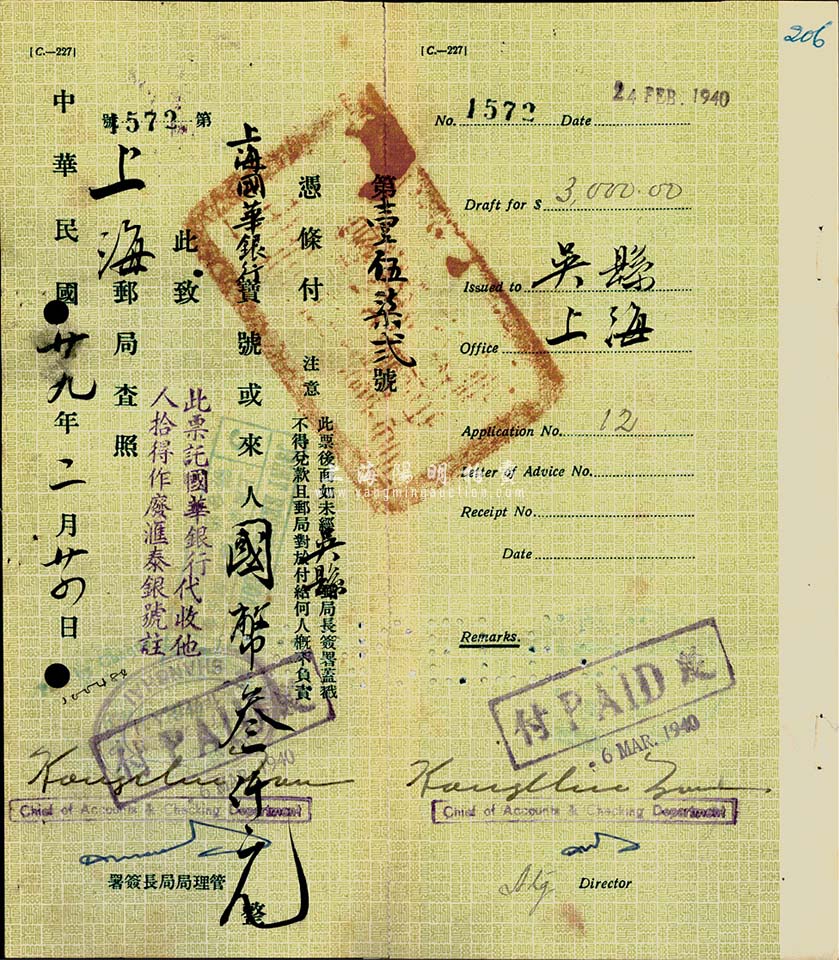 [C.—227]
第1572號
憑條付
注意 此票後面如未經吳縣郵局長簽署蓋戳
不得兌款且郵局對於付給何人概不負責
上海國華銀行寶號或來人國幣叁仟元整
此致
上海郵局查照
中華民國廿九年二月廿四日
此票託國華銀行代收他
人拾得作廢滙泰銀號註
付 PAID 訖
Chief of Accounts & Checking Department
管理局局長簽署
第壹伍柒弍號
上海陽明拍賣
www.yangmingauction.com
206
[C.—227]
24 FEB. 1940
No. 1572 Date
Draft for $ 3,000.00
Issued to 吳縣
Office 上海
Application No. 12
Letter of Advice No.
Receipt No.
Date
Remarks.
付 PAID 訖
6 MAR. 1940
Chief of Accounts & Checking Department
Director